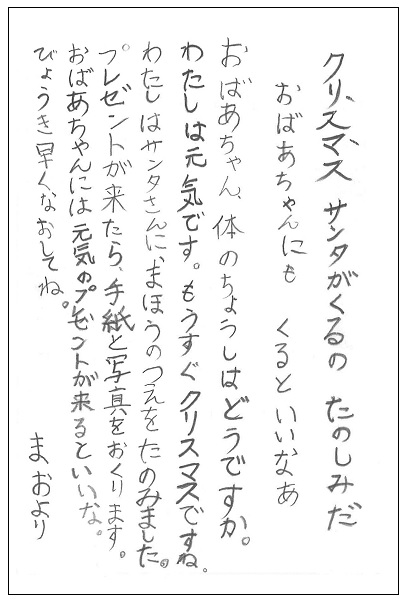 クリスマス サンタがくるの たのしみだ
おばあちゃんにも くるといいなあ
おばあちゃん、体のちょうしはどうですか。
わたしは元気です。もうすぐクリスマスですね。
わたしはサンタさんに、まほうのつえをたのみました。
プレゼントが来たら、手紙と写真をおくります。
おばあちゃんには元気のプレゼントが来るといいな。
びょうき早くなおしてね。
まおより